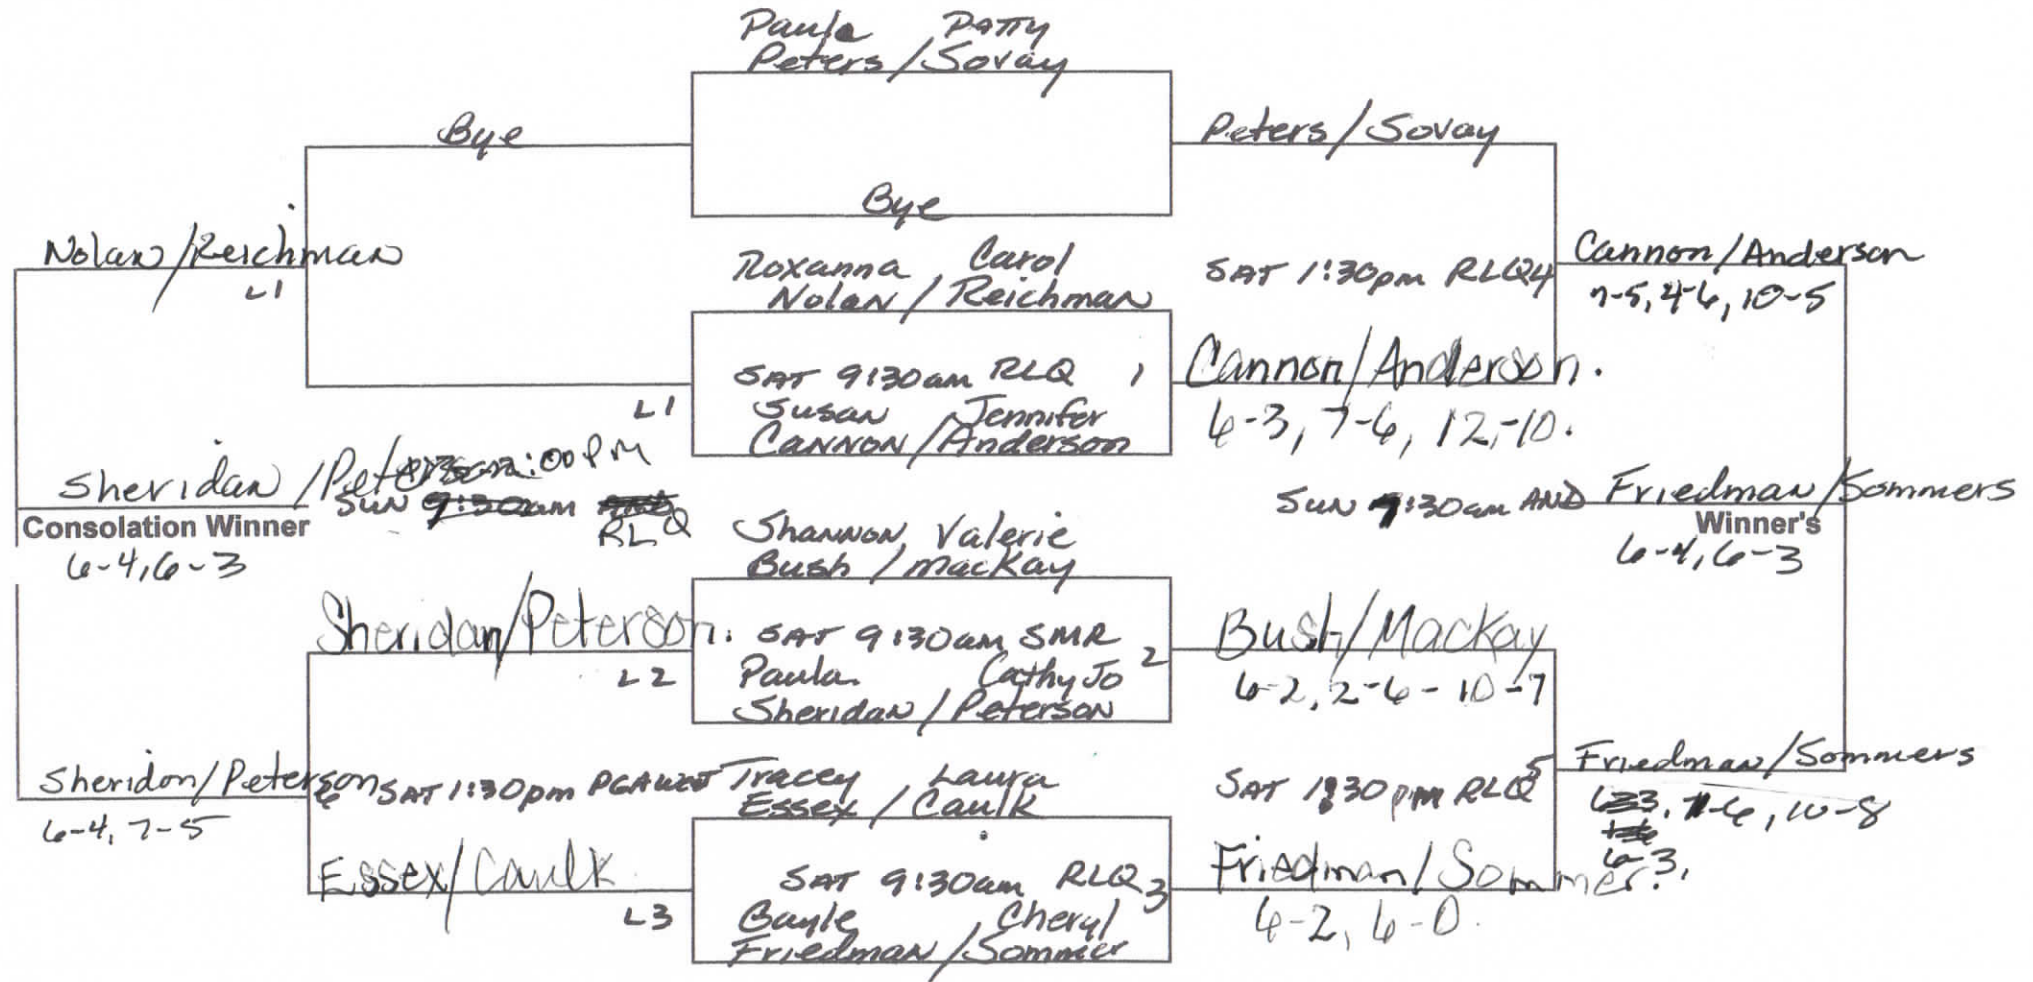 Paula Patty
Peters/Sovay
Bye
Peters/Sovay
Bye
Nolan/Reichman
L1
Roxanna Carol
Nolan/Reichman
SAT 1:30pm RLQ 4
Cannon/Anderson
7-5, 4-6, 10-5
SAT 9:30am RLQ 1
Susan Jennifer
CANNON/Anderson
L1
Cannon/Anderson.
6-3, 7-6, 12-10.
Sheridan/Peterson :00 PM
SUN am
RLQ
Consolation Winner
6-4, 6-3
SUN 9:30am AND
Friedman/Sommers
Winner's
6-4, 6-3
Shannon Valerie
Bush/MacKay
Sheridan/Peterson.
L2
SAT 9:30am SMR 2
Paula Cathy Jo
Sheridan/Peterson
Bush/Mackay
6-2, 2-6-10-7
Sheridon/Peterson
6-4, 7-5
6 SAT 1:30pm PGA WEST
Tracey Laura
Essex/Caulk
SAT 1:30pm RLQ 5
Friedman/Sommers
-6, 10-8
6-3,
Essex/Caulk
L3
SAT 9:30am RLQ 3
Gayle Cheryl
Friedman/Sommer
Friedman/Sommer
6-2, 6-0.